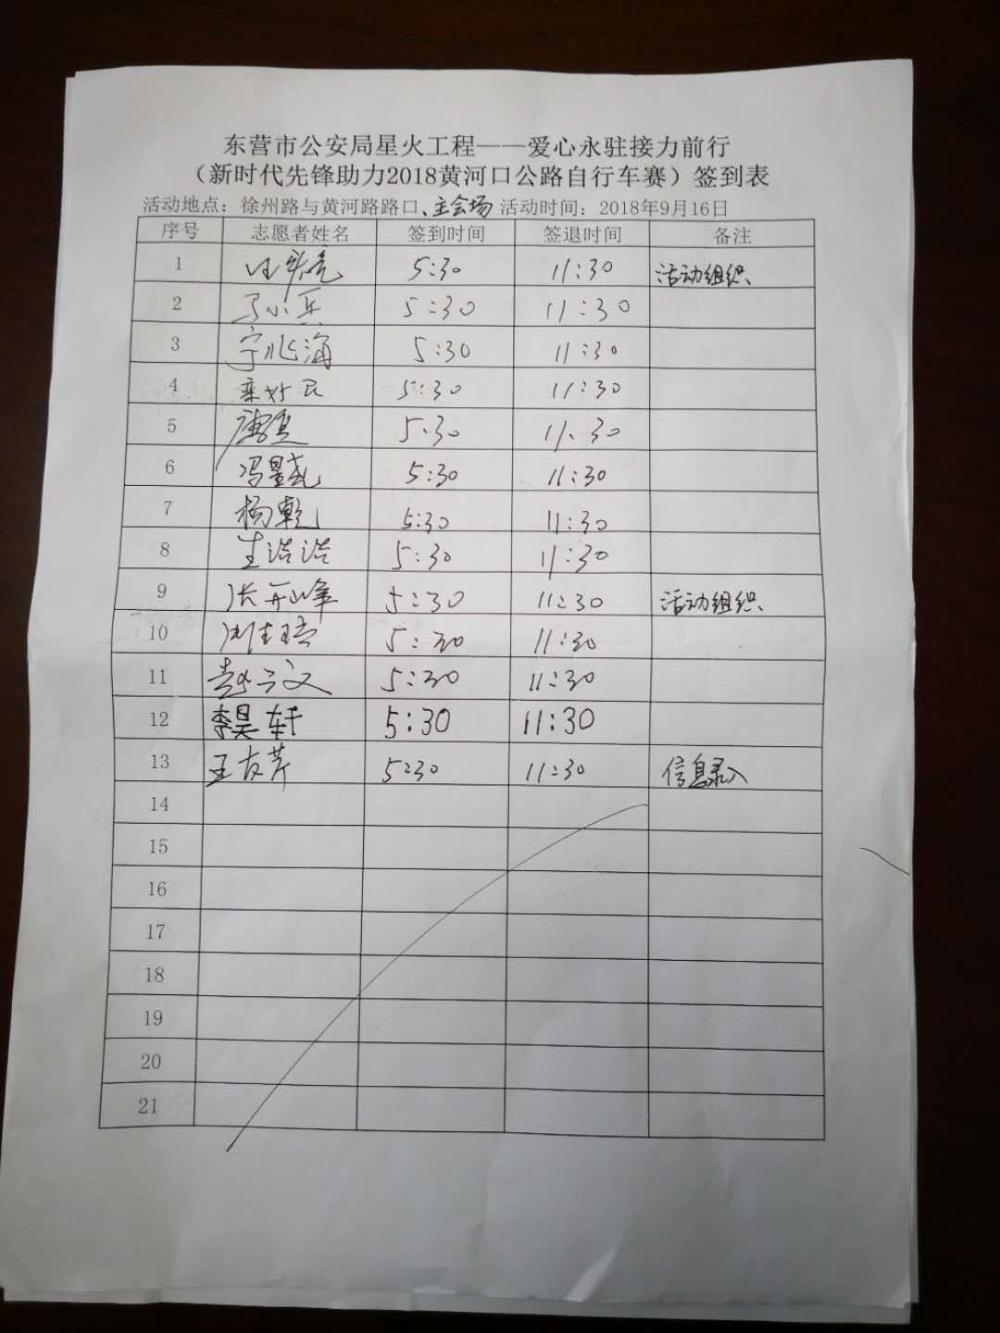 东营市公安局星火工程——爱心永驻接力前行
（新时代先锋助力2018黄河口公路自行车赛）签到表
活动地点：徐州路与黄河路路口、主会场 活动时间：2018年9月16日
序号 志愿者姓名 签到时间 签退时间 备注
1 5:30 11:30 活动组织、
2 5:30 11:30
3 宁兆海 5:30 11:30
4 5:30 11:30
5 5:30 11:30
6 冯昱尧 5:30 11:30
7 杨乾 5:30 11:30
8 生浩浩 5:30 11:30
9 张开峰 5:30 11:30 活动组织、
10 5:30 11:30
11 赵文 5:30 11:30
12 李昊轩 5:30 11:30
13 王友芹 5:30 11:30 信息录入
14
15
16
17
18
19
20
21